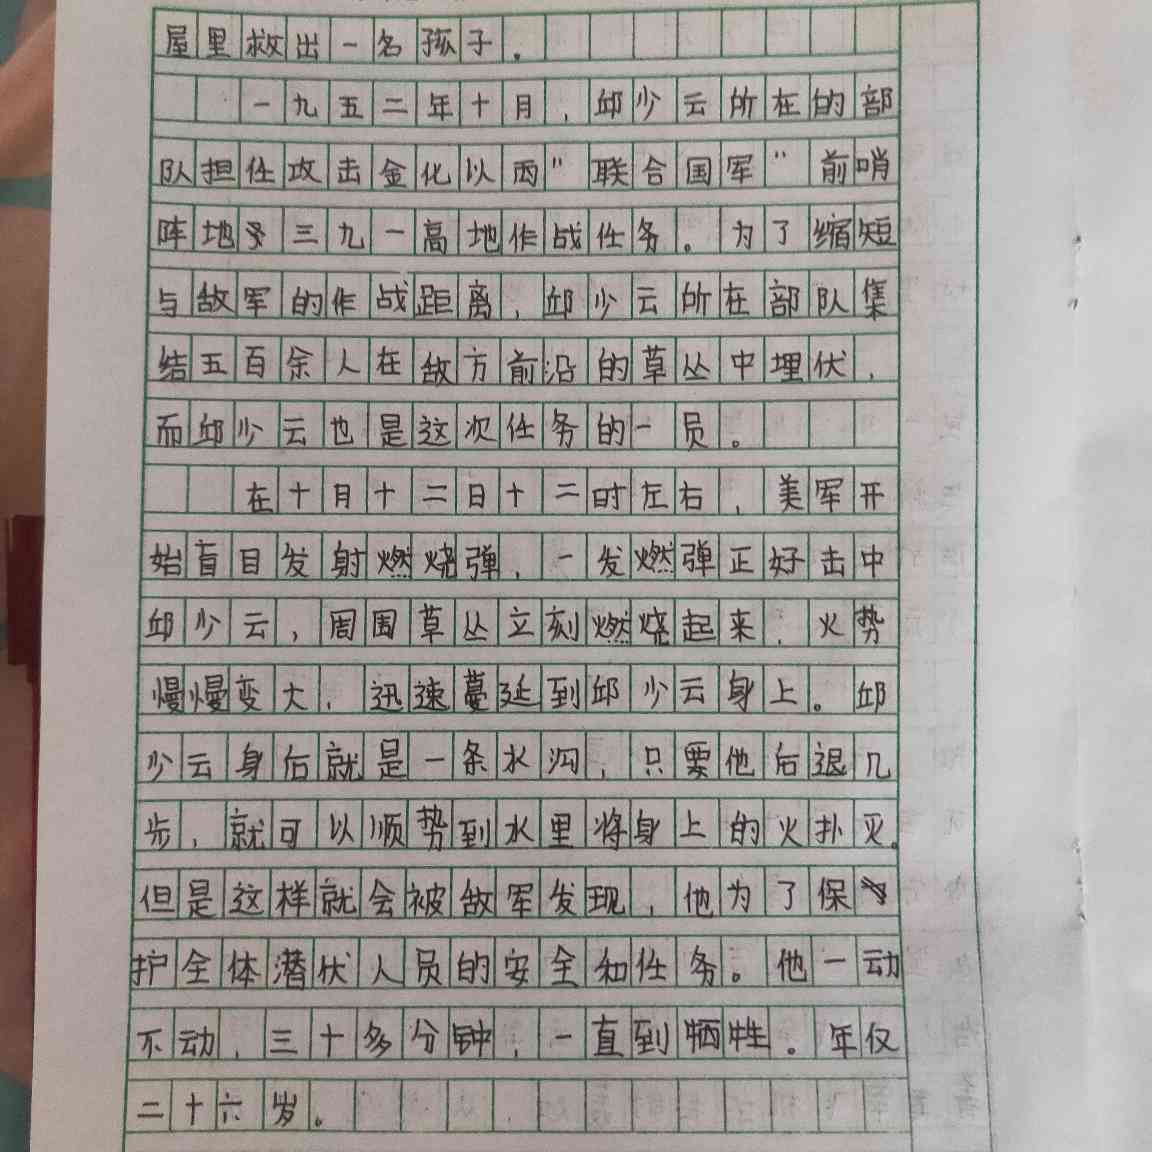 屋里救出一名孩子。
一九五二年十月，邱少云所在的部
队担任攻击金化以西"联合国军"前哨
阵地三九一高地作战任务。为了缩短
与敌军的作战距离，邱少云所在部队集
结五百余人在敌方前沿的草丛中埋伏，
而邱少云也是这次任务的一员。
在十月十二日十二时左右，美军开
始盲目发射燃烧弹，一发燃弹正好击中
邱少云，周围草丛立刻燃烧起来，火势
慢慢变大，迅速蔓延到邱少云身上。邱
少云身后就是一条水沟，只要他后退几
步，就可以顺势到水里将身上的火扑灭。
但是这样就会被敌军发现，他为了保
护全体潜伏人员的安全和任务。他一动
不动，三十多分钟，一直到牺牲。年仅
二十六岁。